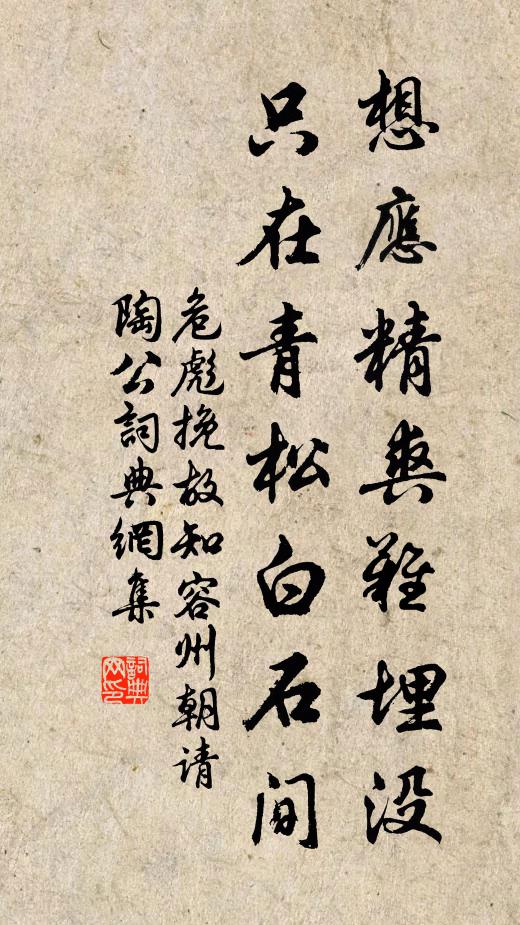 想應精爽難埋没
只在青松白石間
危彪挽故知容州朝请
陶公詞典網集
詞典網印